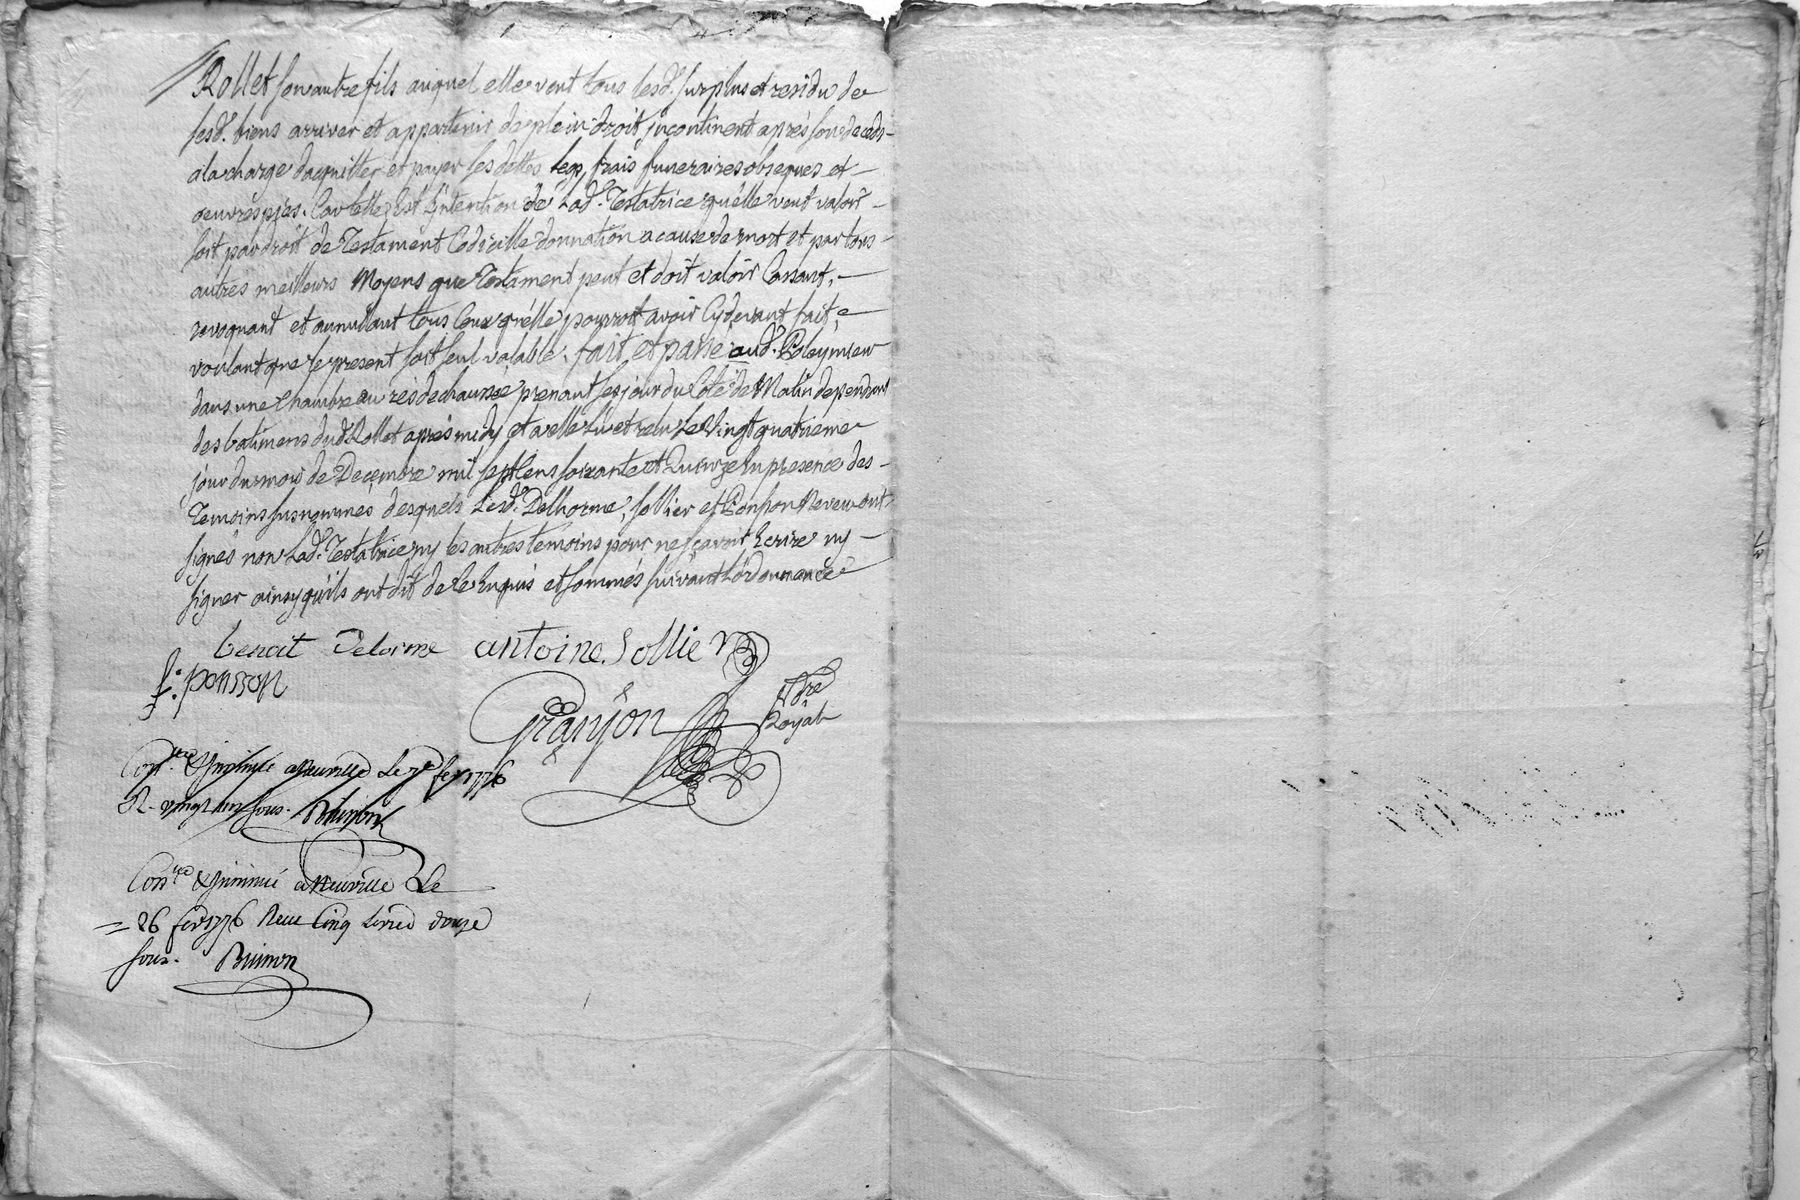 Rollet son autre fils auquel elle veut tous lesd. surplus et residu de
sesd. biens arriver et appartenir de plein droit incontinent après son deceds
a la charge dacquitter et payer ses dettes legs, frais funeraires obseques et
oeuvres pies. Car telle est Lintention de Lad. Testatrice quelle veut valoir
soit par droit de Testament Codicille donnation a cause de mort et par tous
autres meilleurs Moyens que Testament peut et doit valoir Cassant,
revoquant et annullant tous Ceux quelle pourroit avoir Cydevant fait,
voulant que le present soit seul valable. fait et passé aud. Poleymieu
dans une Chambre au rés de chaussée prenant ses jour du Coté de Matin dependant
des batimens dud. Rollet après midy et a elle Lu et relu Le Vingt quatrieme
jour du mois de Decembre mil sept Cens soixante et Quinze En presence des
Temoins susnommés desquels Lesd. Delhorme, Sollier et Ponson Neveu ont
signés non Lad. Testatrice ny les autres temoins pour ne sçavoir Ecrire ny
signer ainsy quils ont dit de ce Enquis et sommés suivant Lordonnance
benoit Delorme antoine Sollier
f. ponson
Granjon
Nre
Royal
Con.lé & Insinué a Neuville Le 7e fev 1776
R. vingt un sous. Buinon
Con.lé & Insinué a Neuville Le
26 fev 1776 Reçu Cinq Livres douze
sous. Buinon